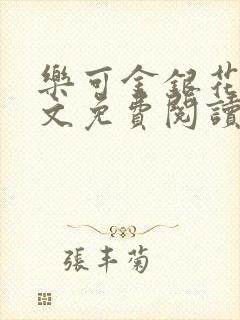 樂可金銀花
文免費閱讀
張丰菊